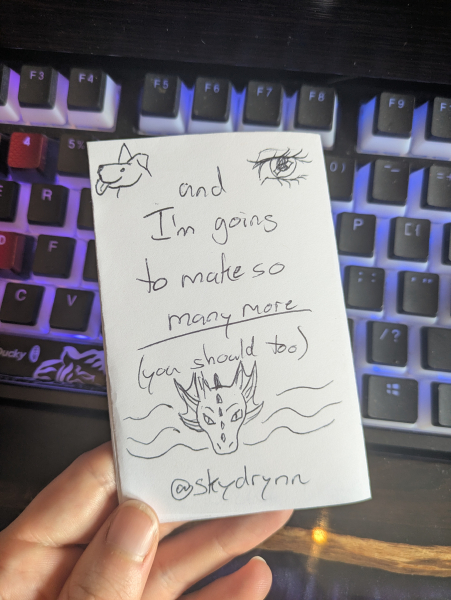 F3 F4 F5 F6 F7 F8 F9
4 5% ) - = +
R P [{
F : ; "
C V /?
ucky
and
I'm going
to make so
many more
(you should too)
@skydrynn